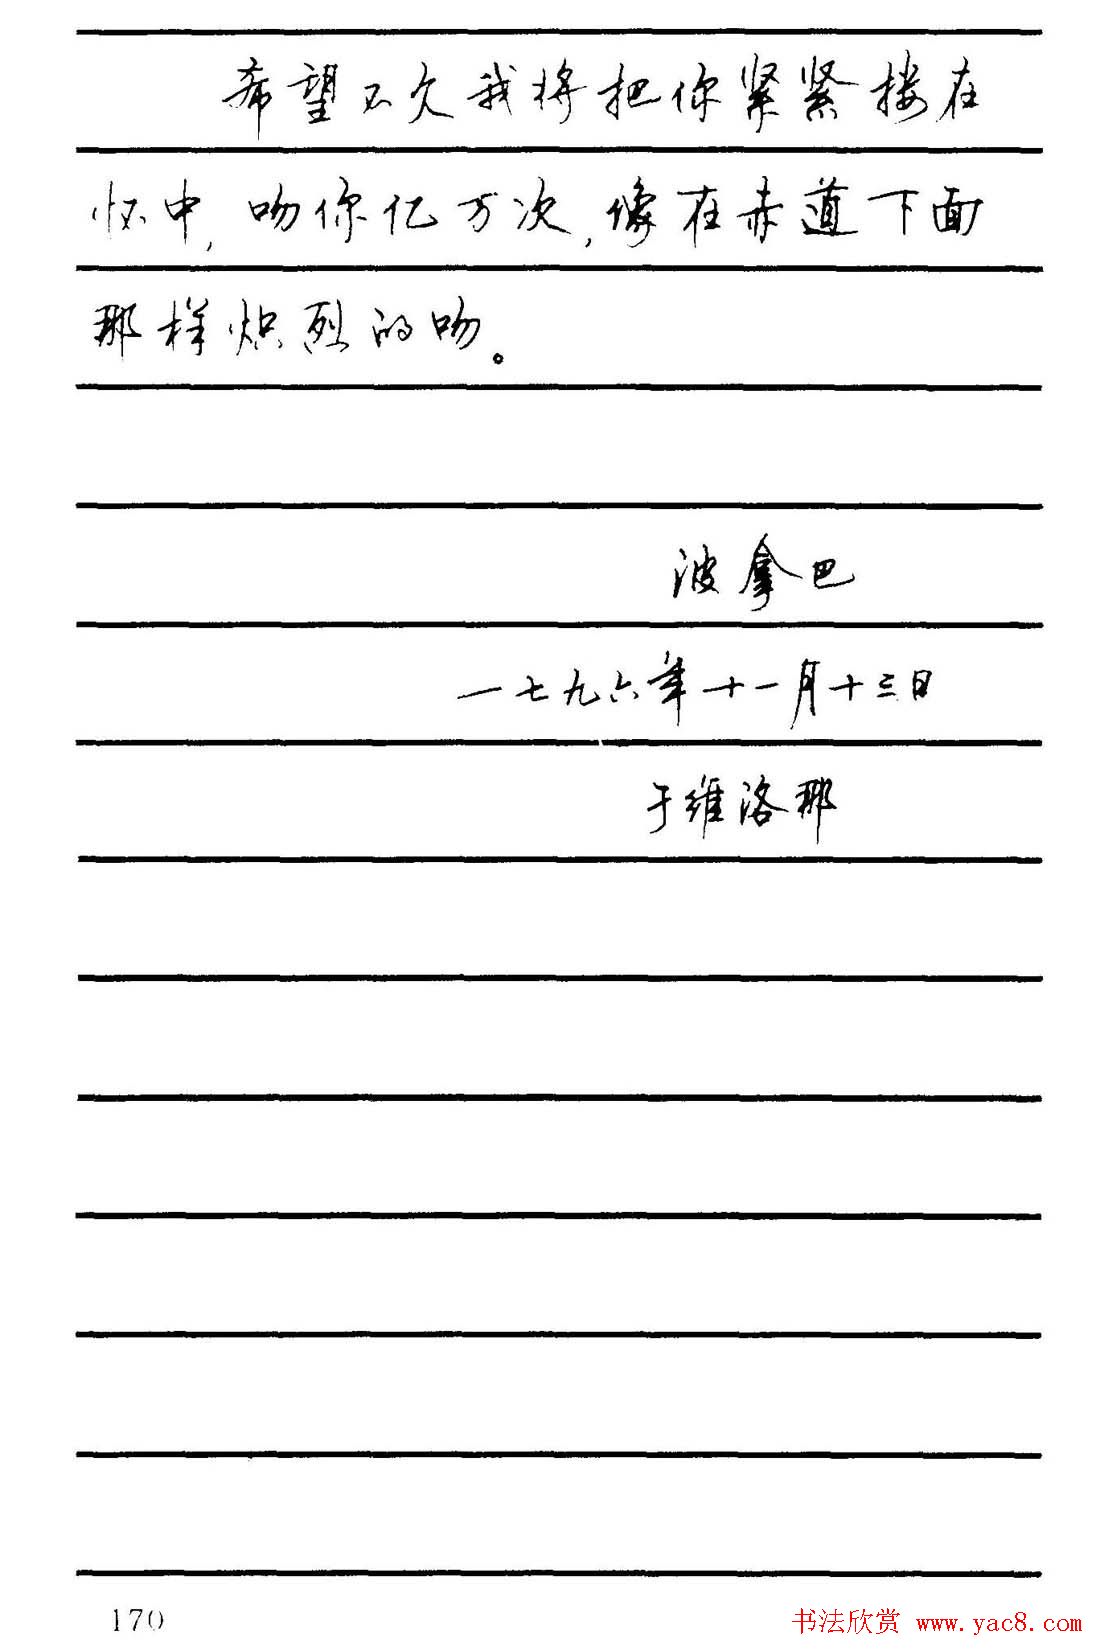 希望不久我将把你紧紧搂在
怀中,吻你亿万次,像在赤道下面
那样炽烈的吻。
波拿巴
一七九六年十一月十三日
于维洛那
170
书法欣赏 www.yac8.com